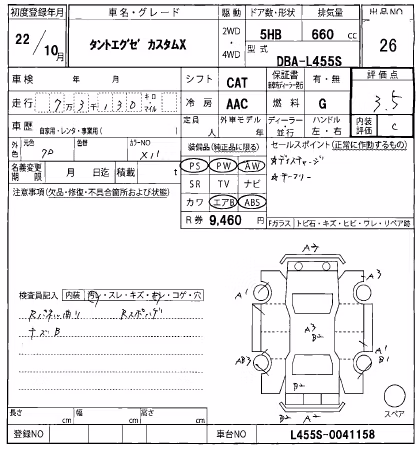 初度登録年月 車名・グレード 駆動 ドア数・形状 排気量 出品NO
22/10月 タントエグゼ カスタムX 2WD・4WD 5HB 660 cc 26
型式 DBA-L455S
車検 年 月 シフト CAT 保証書 有・無 評価点
走行 7万3千130 キロ・マイル 冷房 AAC 燃料 G 3.5
車歴 自家用・レンタ・事業用( ) 定員 人 外車モデル 年 ディーラー 並行 ハンドル 左・右 内装評価 C
外色 元色 色替 カラーNO X11
装備品(純正品に限る) セールスポイント(正常に作動するもの)
名義変更期限 月 日迄 積載 t
PS PW AW
SR TV ナビ
カワ エアB ABS
注意事項(欠品・修復・不具合箇所および状態)
R券 9,460円
Fガラス トビ石・キズ・ヒビ・ワレ・リペア跡
検査員記入 内装 汚レ・スレ・キズ・コゲ・穴
A3
A1
A3
A3
B2
AB3
A1
B1
B2
B2 A2
スペア
長さ cm 幅 cm 高さ cm
登録NO 車台NO L455S-0041158